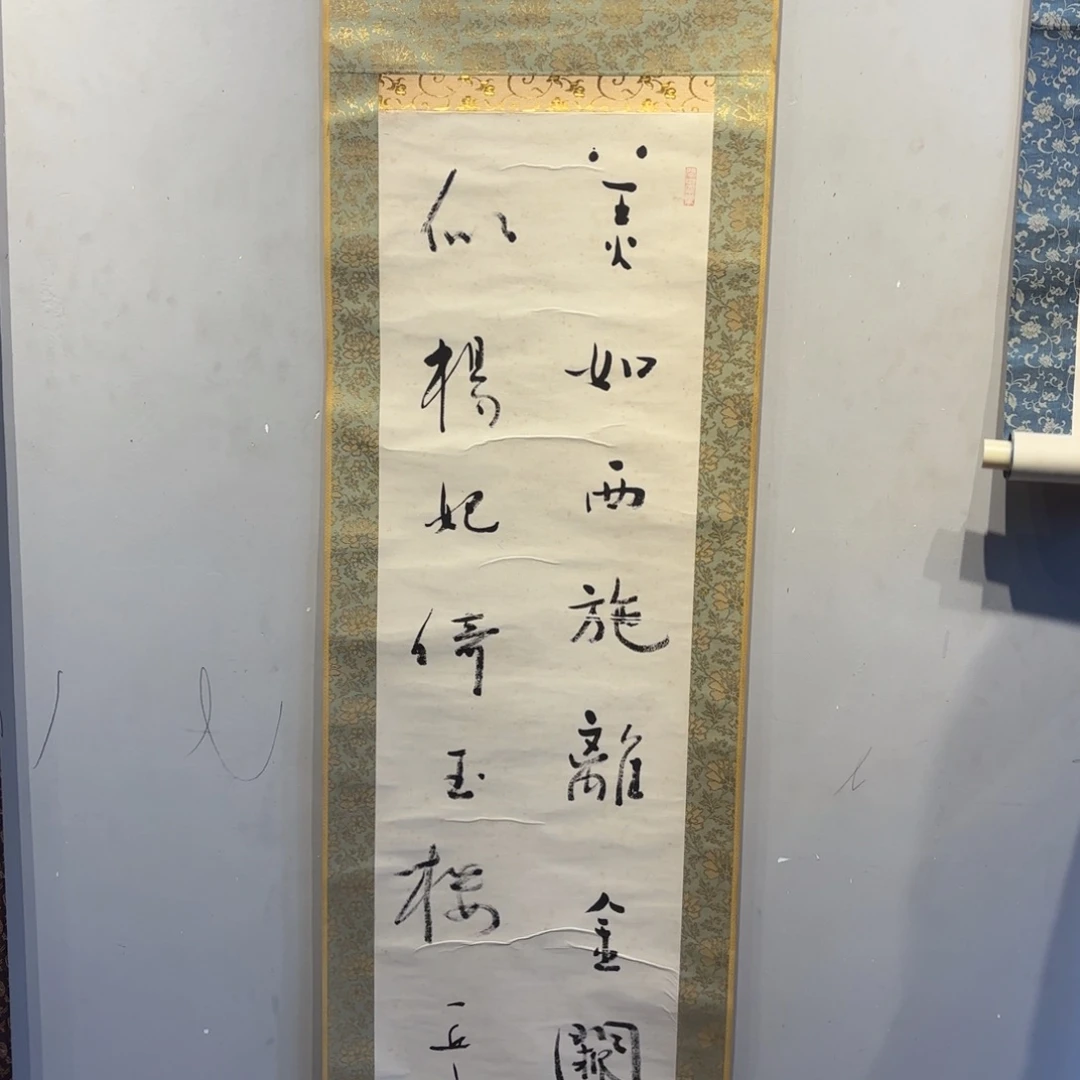 美如西施離金闕
似楊妃倚玉楼